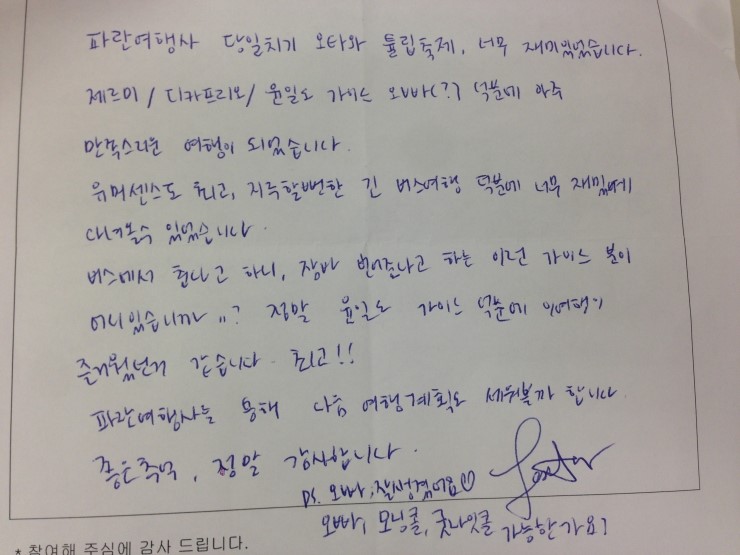 파란여행사 당일치기 오타와 튤립축제, 너무 재미있었습니다.
제르미 / 디카프리오 / 윤일도 가이드 오빠(?) 덕분에 아주
만족스러운 여행이 되었습니다.
유머센스도 최고, 지루할뻔한 긴 버스여행 덕분에 너무 재밌게
다녀올수 있었습니다.
버스에서 춥다고 하니, 잠바 벗어준다고 하는 이런 가이드 분이
어디있습니까 ,,? 정말 윤일도 가이드 덕분에 이여행이
즐거웠던거 같습니다. 최고!!
파란여행사를 통해 다음 여행계획도 세워볼까 합니다.
좋은추억, 정말 감사합니다.
PS. 오빠, 잘생겼어요♡
오빠, 모닝콜, 굿나잇콜 가능한가요?
* 참여해 주심에 감사 드립니다.